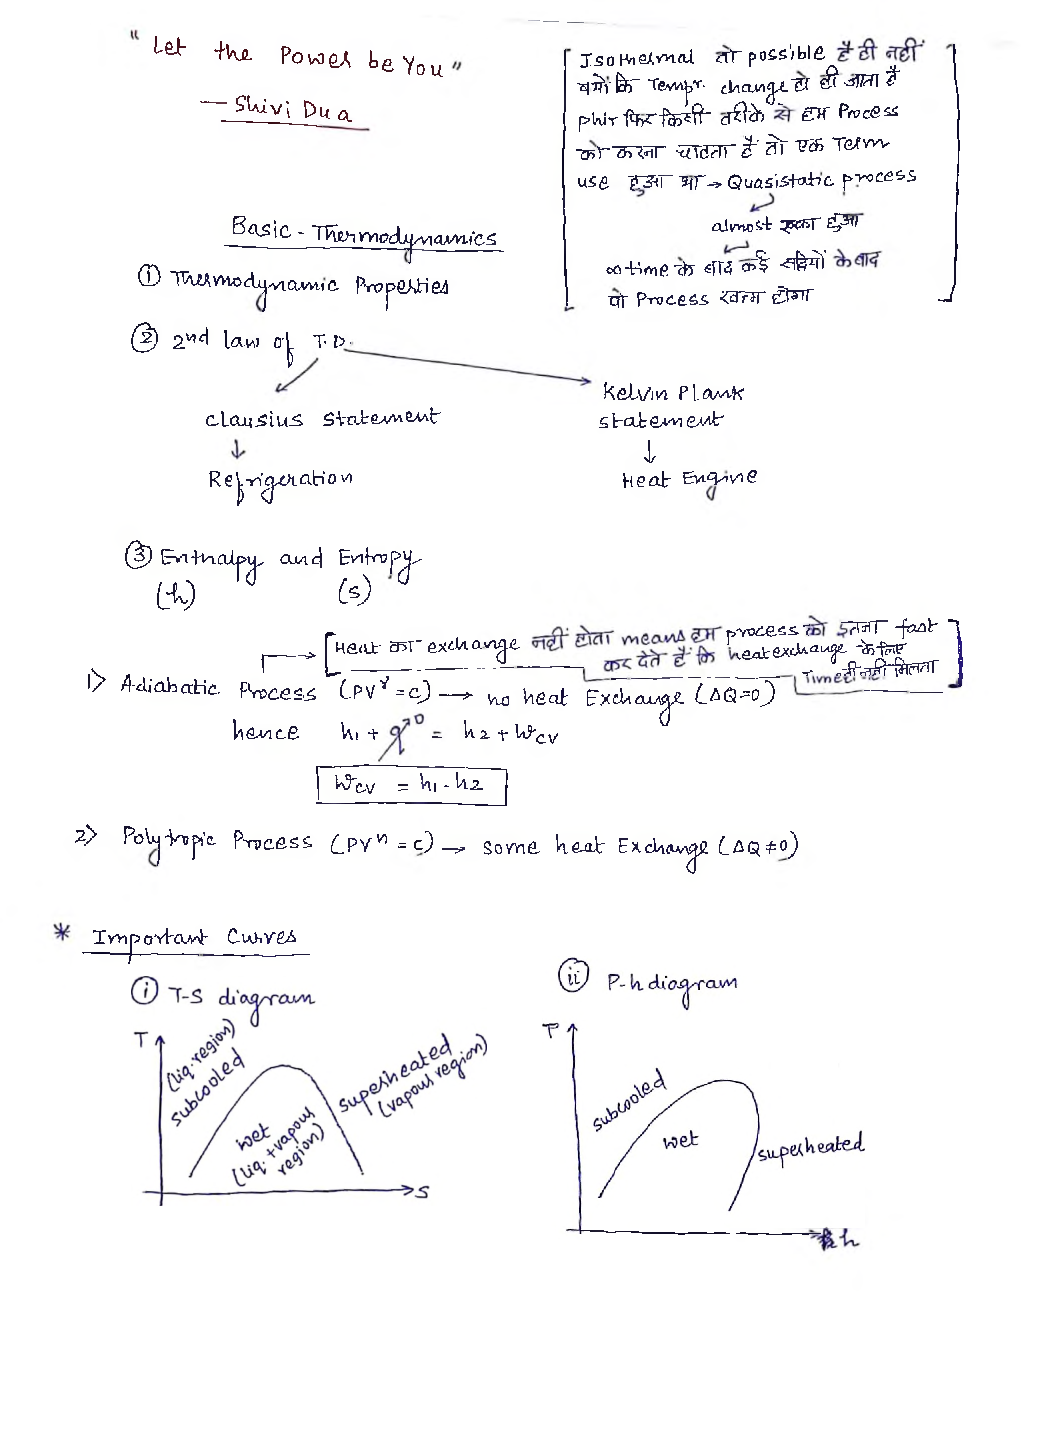 "Let the Power be You"
— Shivi Dua
[Isothermal तो possible है ही नहीं
क्योंकि Tempr. change हो ही जाता है
phir फिर किसी तरीके से हम Process
को करना चाहता है तो एक Term
use हुआ था → Quasistatic process
almost रुका हुआ
∞ time के बाद कई सदियों के बाद
वो Process खत्म होगा]
Basic - Thermodynamics
① Thermodynamic Properties
② 2nd law of T.D.
Clausius Statement
↓
Refrigeration
Kelvin Plank
Statement
↓
Heat Engine
③ Enthalpy and Entropy
(h) (s)
[Heat का exchange नहीं होता means हम process को इतना fast
कर देते हैं कि heat exchange के लिए
Time ही नहीं मिलता]
1) Adiabatic Process (PVᵞ = c) → no heat Exchange (ΔQ=0)
hence h₁ + q↗⁰ = h₂ + Wcv
Wcv = h₁ - h₂
2) Polytropic Process (PVⁿ = c) → some heat Exchange (ΔQ≠0)
* Important Curves
ⓘ T-S diagram
T
(liq. region)
subcooled
wet
(liq. + vapour
region)
superheated
(vapour region)
S
ⓘⓘ P-h diagram
P
subcooled
wet
superheated
h